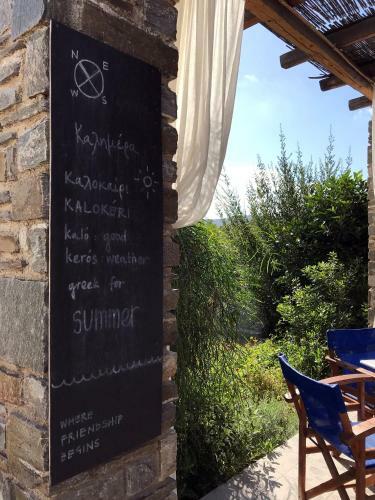 N E
W S
Καλημέρα
Καλοκαίρι
KALOKÉRI
kaló : good
kerós : weather
greek for
summer
WHERE
FRIENDSHIP
BEGINS